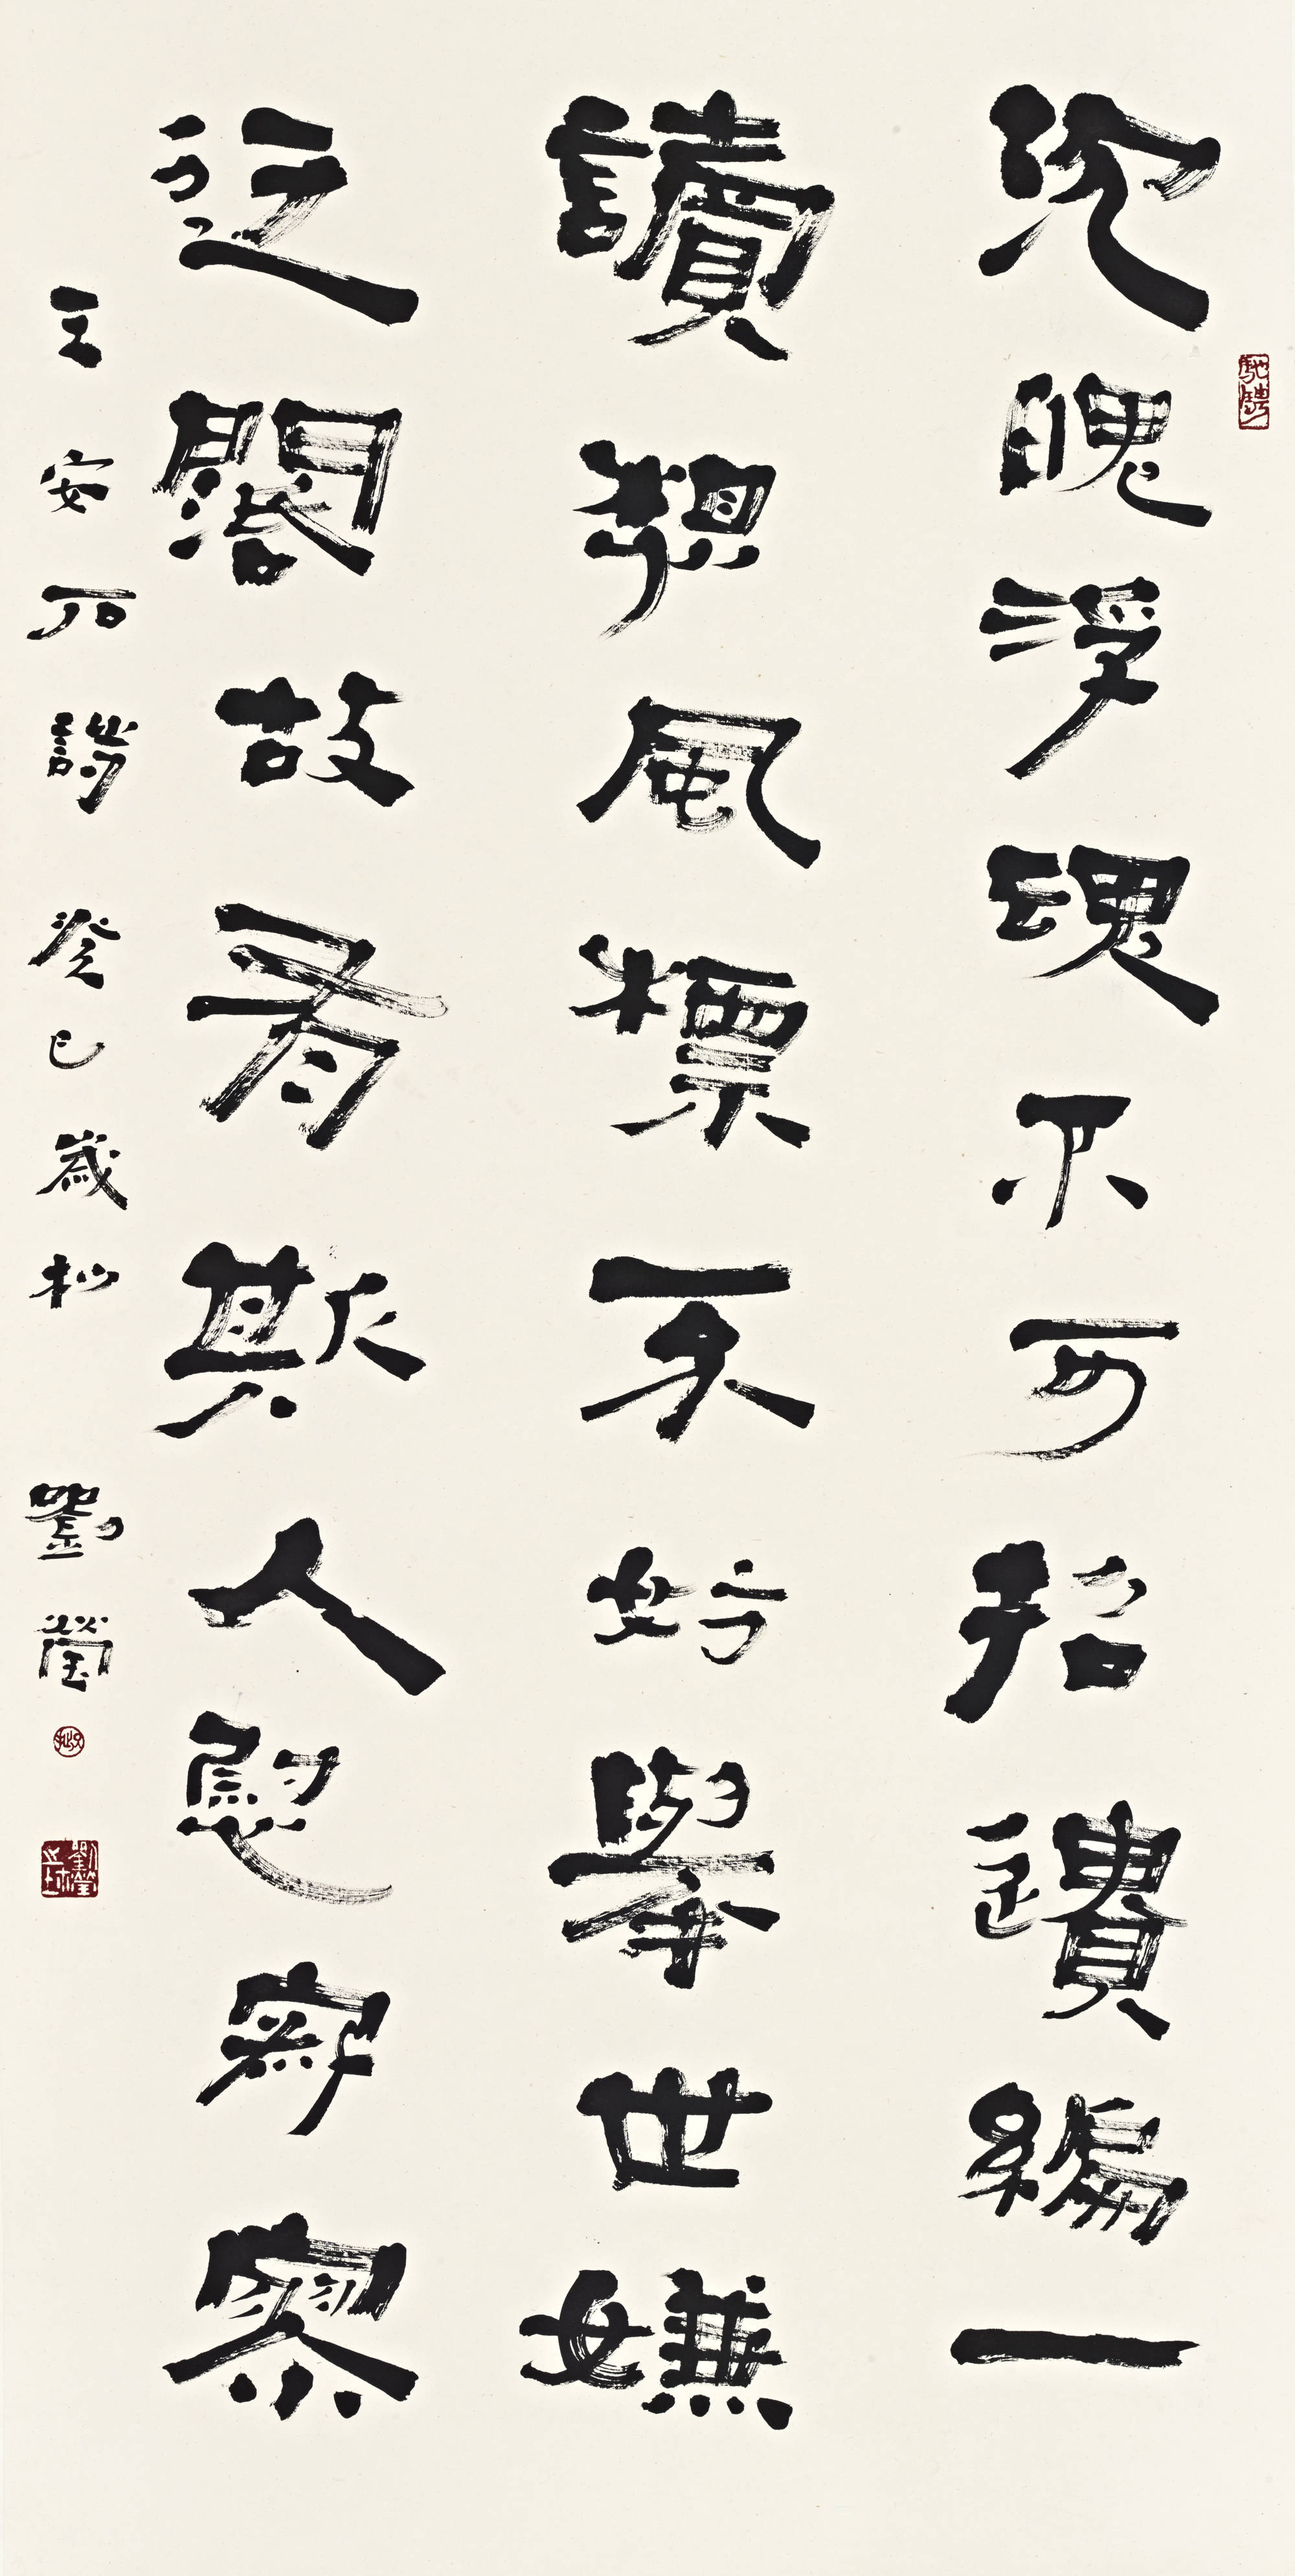 沉魄浮魂不可招遺編一
讀想風標不妨舉世嫌
迂闊故有斯人慰寂寥
王安石詩癸巳歲杪劉瑩
馳騁